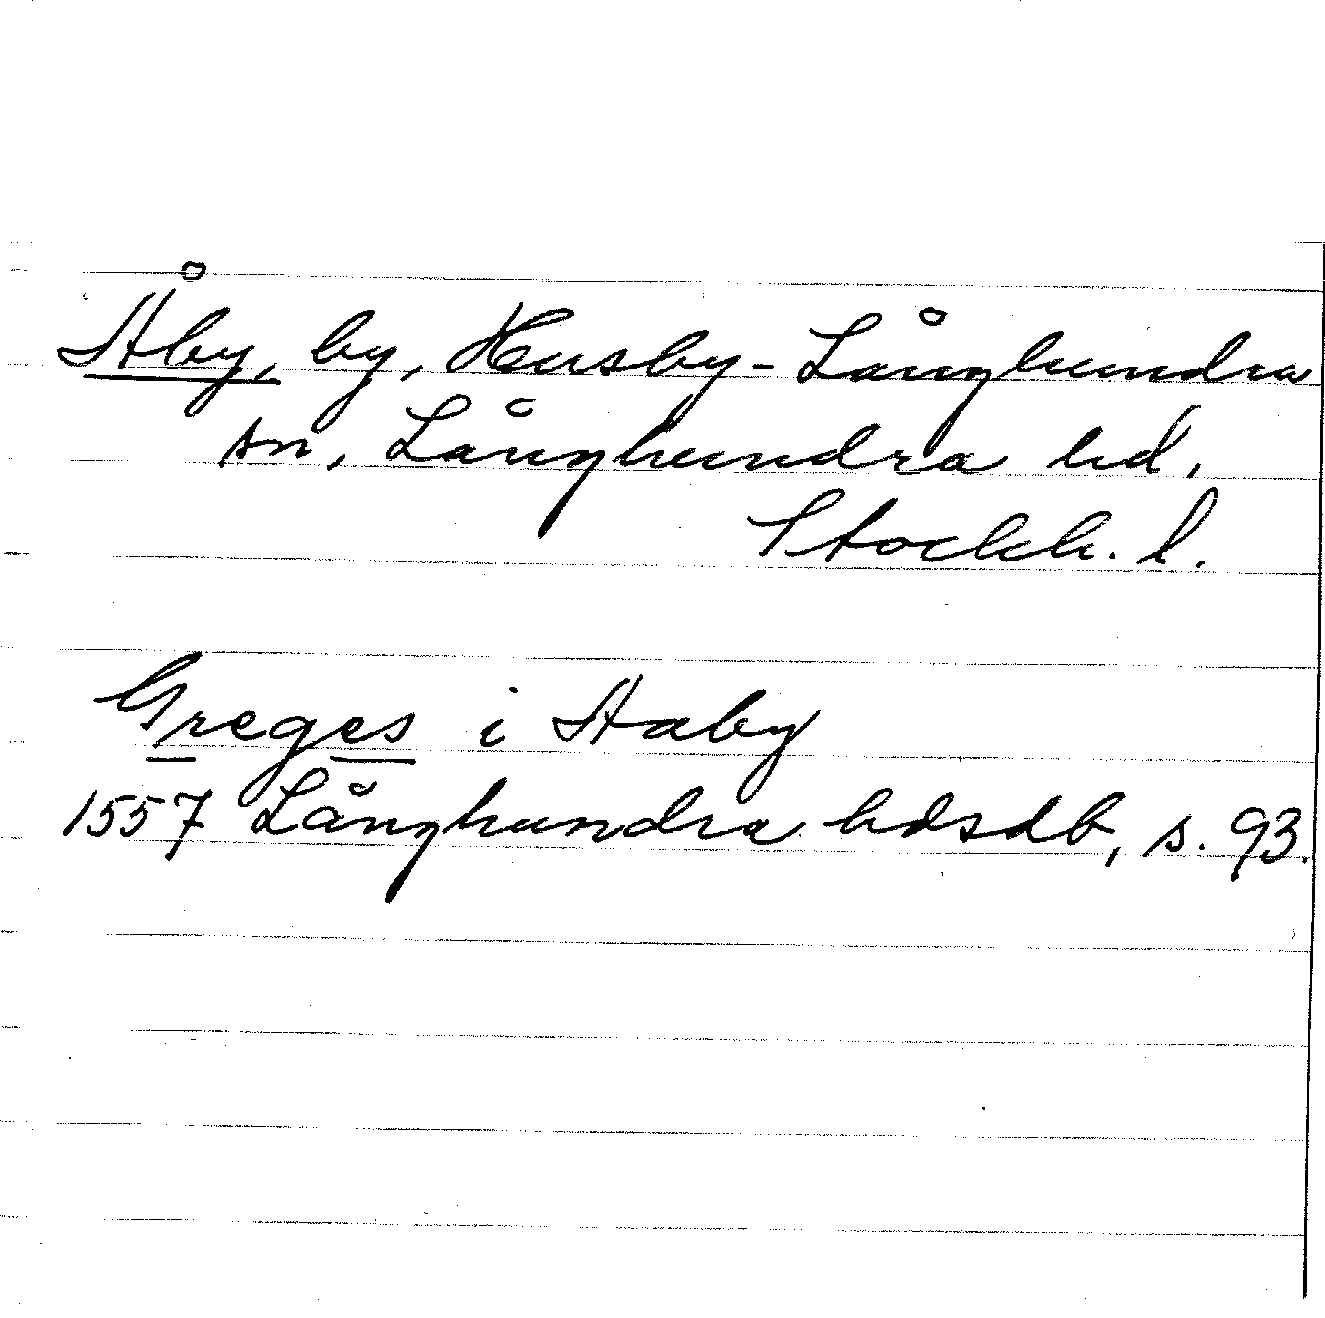 Åby, by, Husby-Långhundra
sn, Långhundra hd,
Stockh. l.
Greges i Aaby
1557 Långhundra hdsdb, s. 93.